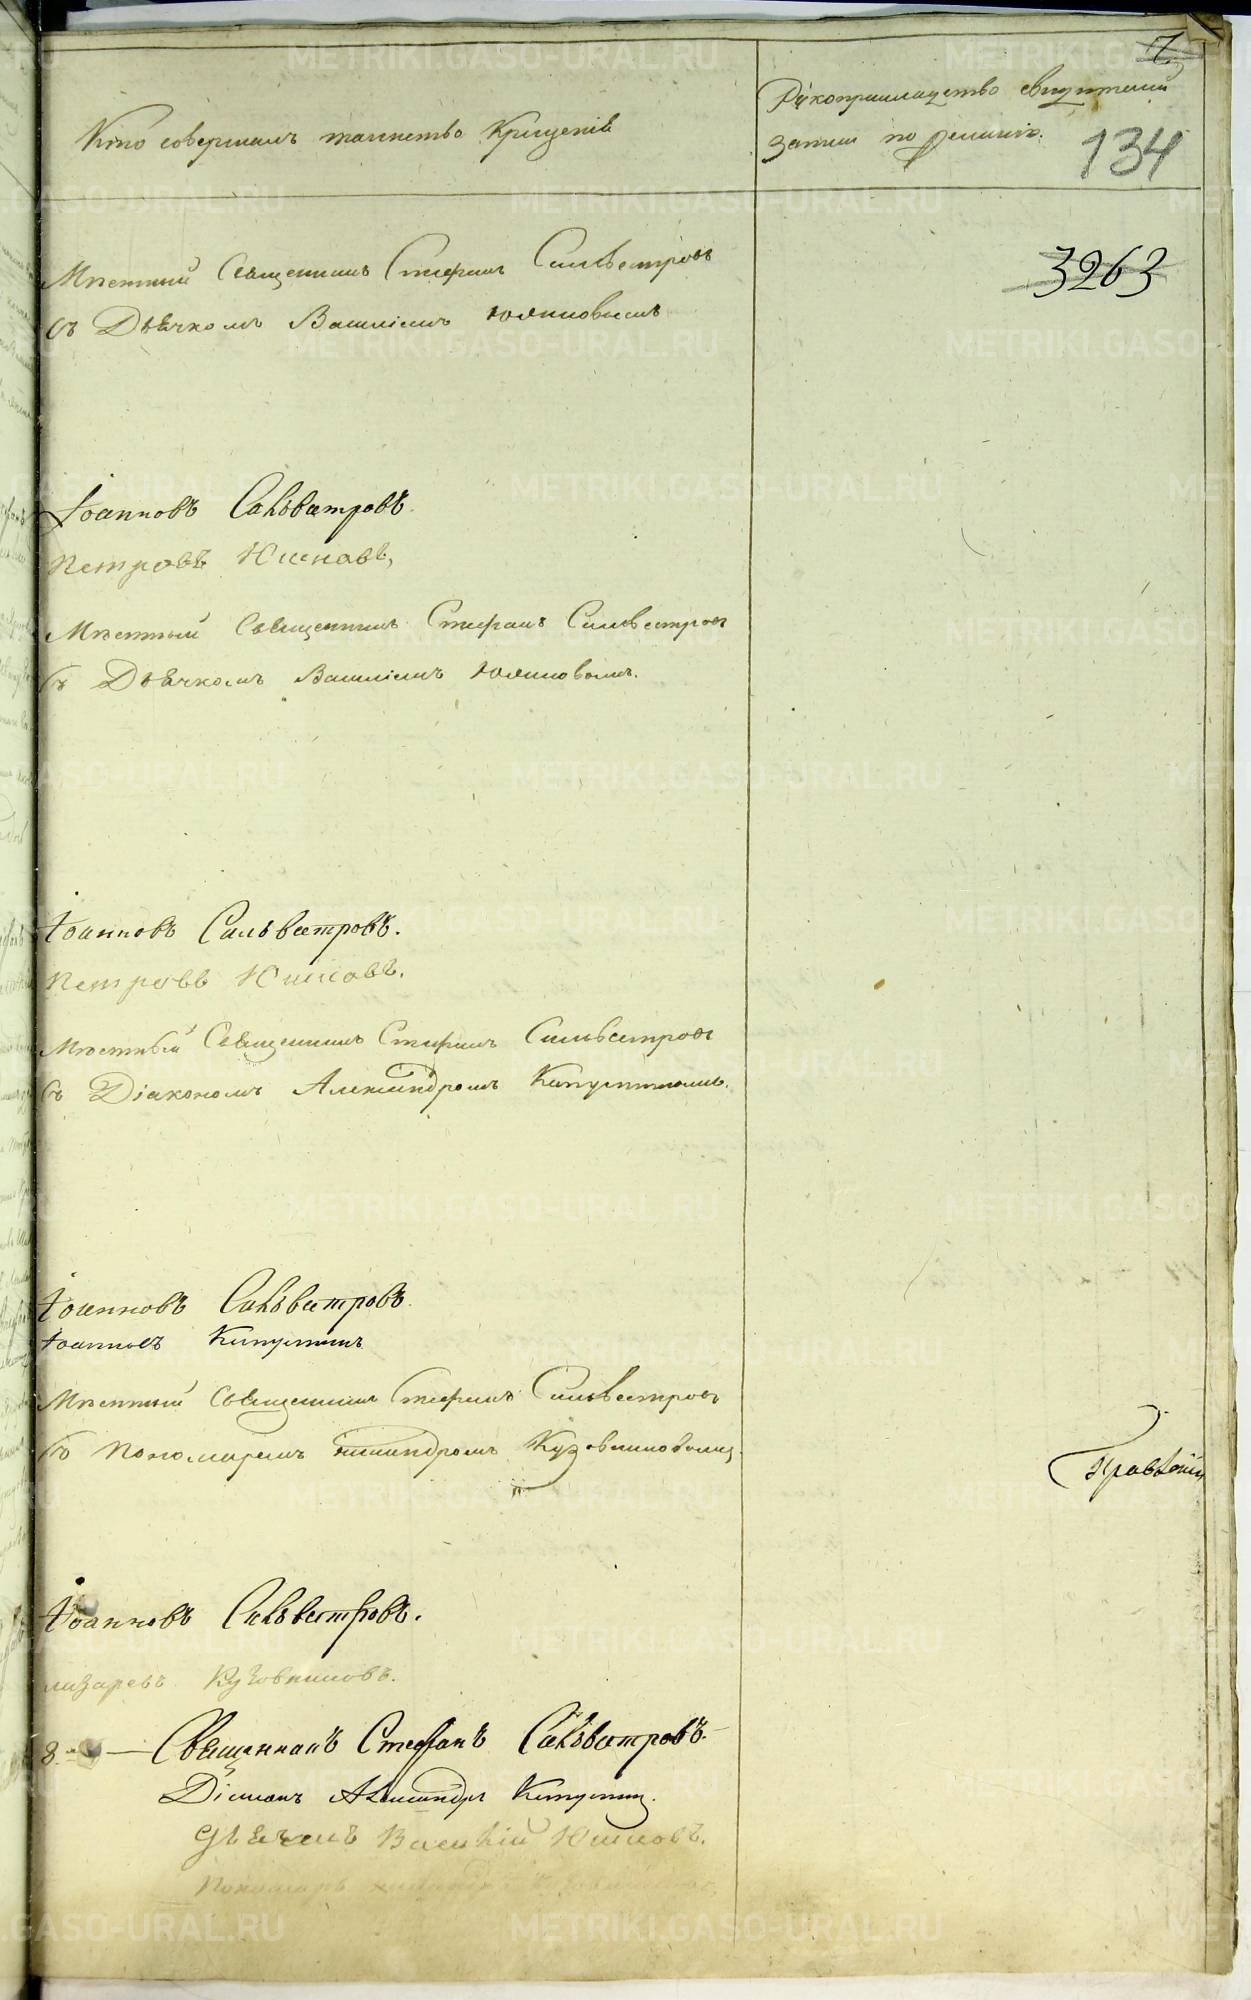 Кто совершалъ таинство Крещенія
Рукоприкладство свидѣтелей
записи по желанію.
134
3263
Мѣстный Священникъ Стефанъ Сильвестровъ
съ Дьячкомъ Василіемъ Юшковымъ
Іоанновъ Сильвестровъ.
Петровъ Юшковъ,
Мѣстный Священникъ Стефанъ Сильвестровъ
съ Дьячкомъ Василіемъ Юшковымъ.
Іоанновъ Сильвестровъ.
Петровъ Юшковъ.
Мѣстный Священникъ Стефанъ Сильвестровъ
съ Діакономъ Александромъ Капустинымъ.
Іоанновъ Сильвестровъ.
Іоанновъ Капустинъ
Мѣстный Священникъ Стефанъ Сильвестровъ
съ Пономаремъ Кузовниковымъ.
Іоанновъ Сильвестровъ.
Кузовниковъ.
8 — Священникъ Стефанъ Сильвестровъ
Діаконъ Александръ Капустинъ.
Дьячекъ Василій Юшковъ.
Пономарь
METRIKI.GASO-URAL.RU